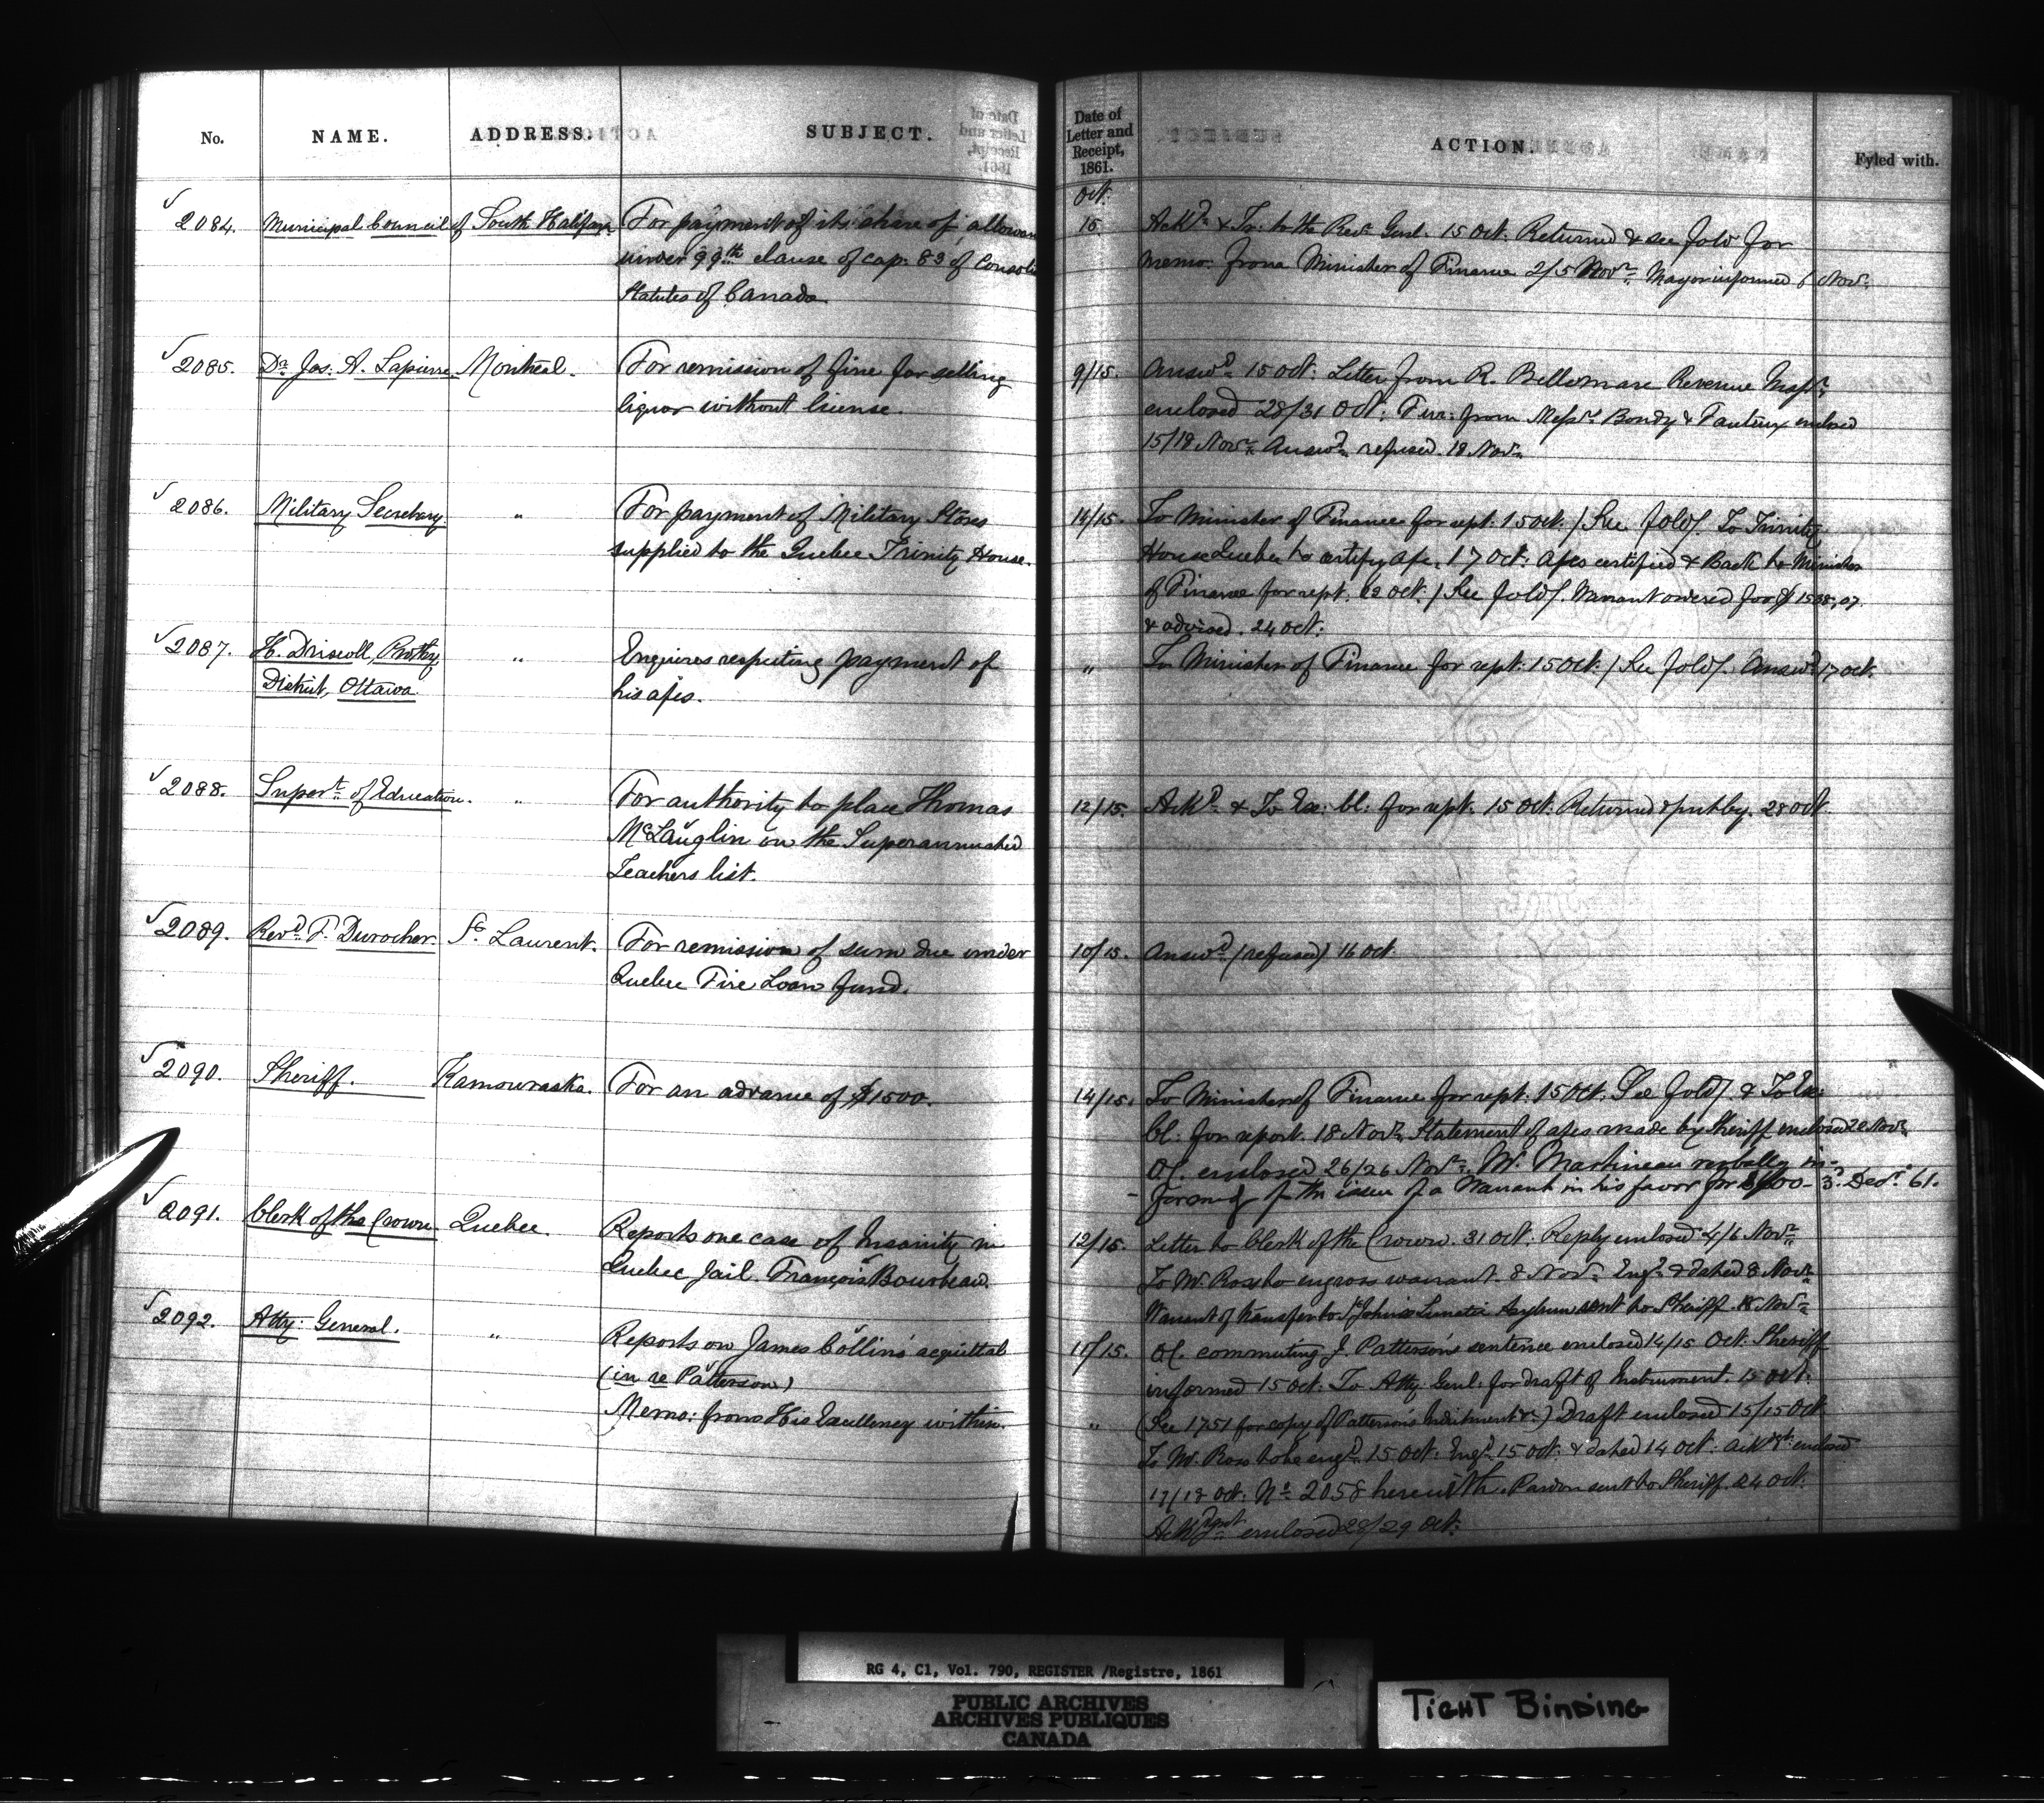 No. NAME. ADDRESS. SUBJECT.
Date of Letter and Receipt, 1861. ACTION. Fyled with.
Oct.
2084. Municipal Council of South Halifax
For payment of its share of allowan
under 99th clause of cap: 83 of Consoli
Statutes of Canada.
15 Ackd & Tr: to the Recr Genl. 15 Oct. Returned & see fold for
memo. from Minister of Finance 2/5 Novr. Mayor informed 6 Novr.
2085. Dr. Jos. A. Lapierre Montreal.
For remission of fine for selling
liquor without license.
9/15. Answd 15 Oct: Letter from R. Bellemare Revenue Inspr
enclosed 28/31 Oct: Fur: from Messrs Bondy & Fauteux enclosed
15/18 Novr. Answd refused. 18 Novr.
2086. Military Secretary "
For payment of Military Stores
supplied to the Quebec Trinity House.
14/15. To Minister of Finance for rept. 15 Oct. / See fold /. To Trinity
House Quebec to certify a/c. 17 Oct: a/cs certified & Back to Minister
of Finance for rept. 19 Oct: / See fold /. Warrant ordered for $1538.07.
& advised. 24 Oct:
2087. H. Driscoll, Prothy
District, Ottawa. "
Enquires respecting payment of
his a/cs.
" To Minister of Finance for rept: 15 Oct: / See fold /. Answd 17 Oct.
2088. Supert. of Education. "
For authority to place Thomas
McLauglin on the Superannuated
Teachers list.
12/15. Ackd & To Ex: Cl: for rept. 15 Oct: Returned & put by. 28 Oct.
2089. Revd F. Durocher St. Laurent.
For remission of sum due under
Quebec Fire Loan fund.
10/15. Answd (refused) 16 Oct.
2090. Sheriff. Kamouraska.
For an advance of $1500.
14/15. To Minister of Finance for rept. 15 Oct. See fold /. & To Ex:
Cl: for report. 18 Novr. Statement of a/cs made by Sheriff enclosed 22 Novr.
O/C. enclosed 26/26 Novr. Mr. Martineau verbally in-
formed of the issue of a Warrant in his favor for 3. Decr. 61.
2091. Clerk of the Crown Quebec.
Reports one case of Insanity in
Quebec Jail. François Bourbeau.
12/15. Letter to Clerk of the Crown. 31 Oct: Reply enclosed 4/6 Novr.
To Mr. Ross to engross warrant. 8 Novr. Engd & dated 8 Novr.
Warrant of transfer to St Johns Lunatic Asylum sent to Sheriff. 18 Novr.
2092. Atty: General. "
Reports on James Collins' acquittal
(in re Patterson)
Memo: from His Excellency within.
11/15. O/C. commuting J. Patterson's sentence enclosed 14/15 Oct: Sheriff
informed 15 Oct: To Atty: Genl: for draft of Instrument. 15 Oct:
" (See 1751 for copy of Patterson's Indictment &c) Draft enclosed 15/15 Oct
To Mr. Ross to be engd. 15 Oct: Engd. 15 Oct: & dated 14 Oct: Ackgt. enclosed
17/18 Oct: No. 2058 herewith. Pardon sent to Sheriff. 24 Oct.
Ackdgnt enclosed 28/29 Oct:
RG 4, C1, Vol. 790, REGISTER /Registre, 1861
PUBLIC ARCHIVES
ARCHIVES PUBLIQUES
CANADA
TIGHT BINDING